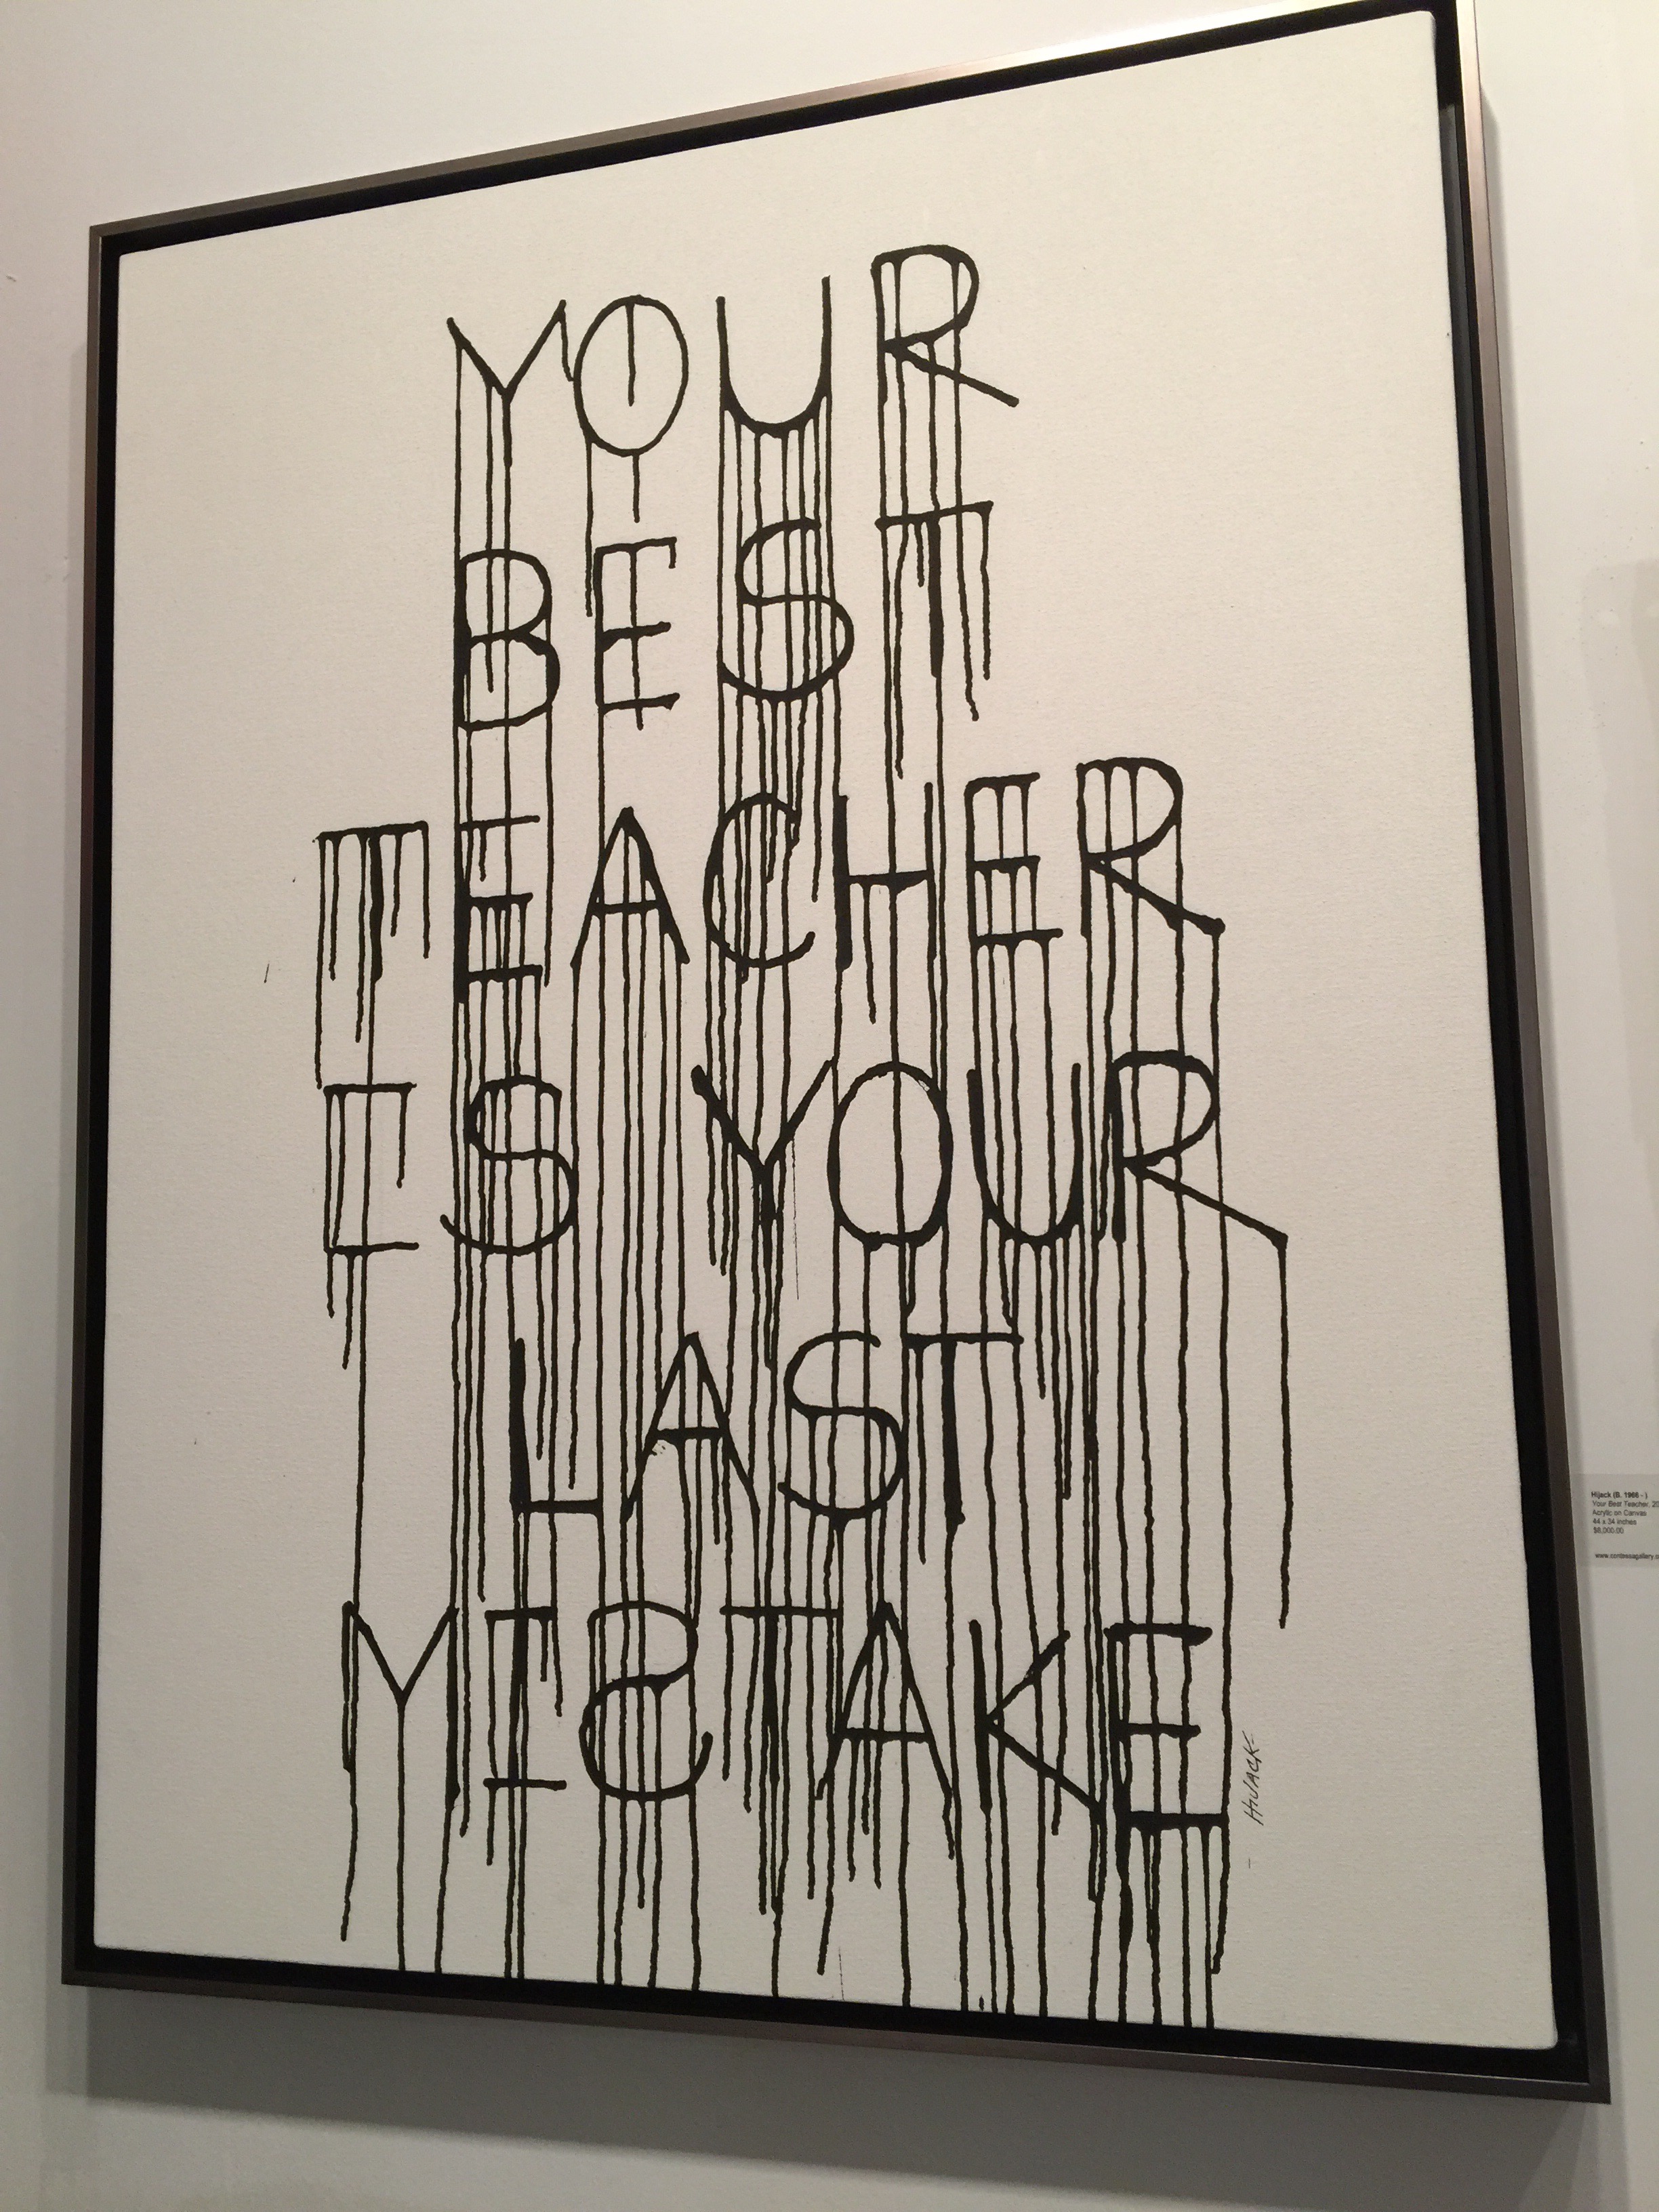 YOUR
BEST
TEACHER
IS YOUR
LAST
MISTAKE
HIJACK
Hijack (B. 1966 - )
Your Best Teacher, 20
Acrylic on Canvas
44 x 34 inches
$8,000.00
www.contessagallery.c